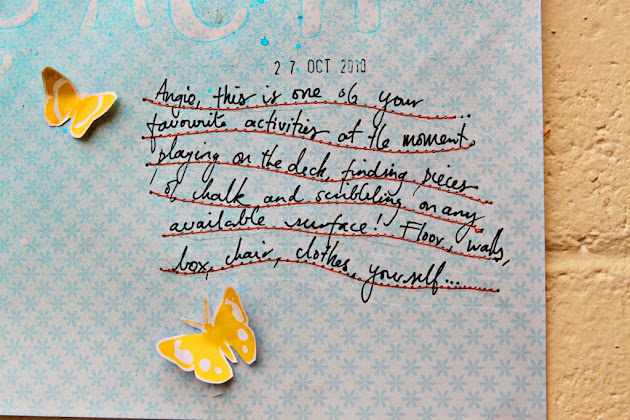 27 OCT 2010
Angie, this is one of your...
favourite activities at the moment.
playing on the deck, finding pieces
of chalk and scribbling on any
available surface! Floor, walls,
box, chair, clothes, yourself....